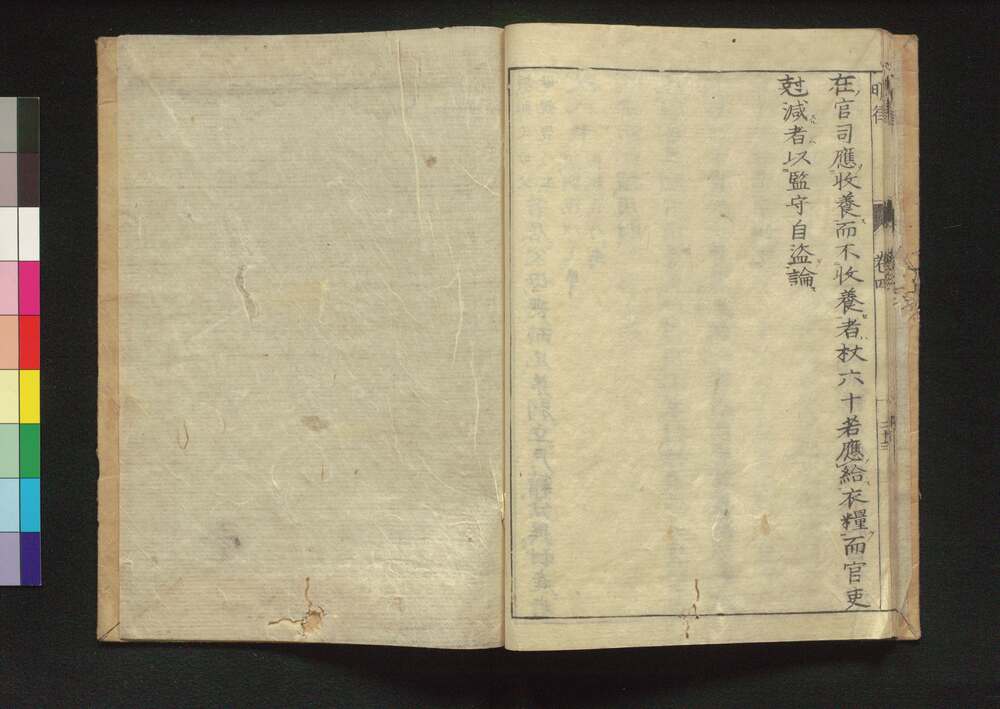 明律
卷四
二十三
在官司應收養而不收養者杖六十若應給衣糧而官吏
尅減者以監守自盗論